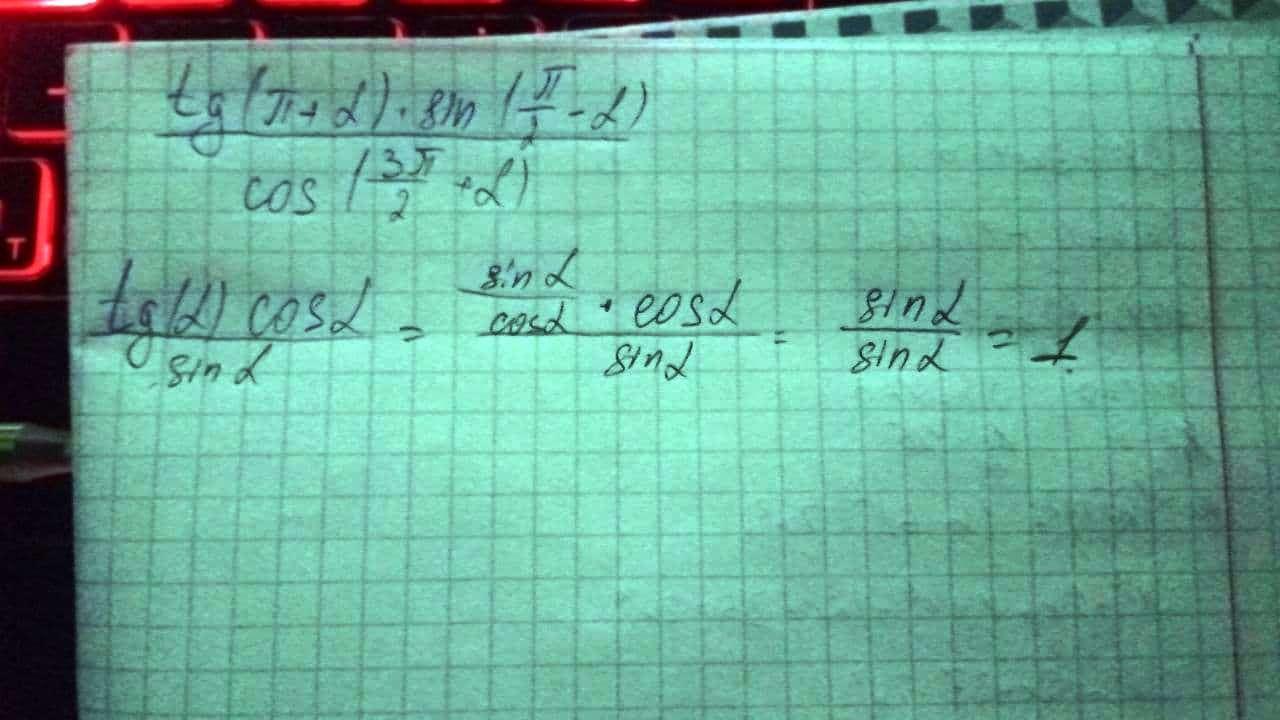 tg(π+α)·sin(π/2-α)
cos(3π/2+α)
tg(α) cosα / sinα = sinα/cosα · cosα / sinα = sinα/sinα = 1
T